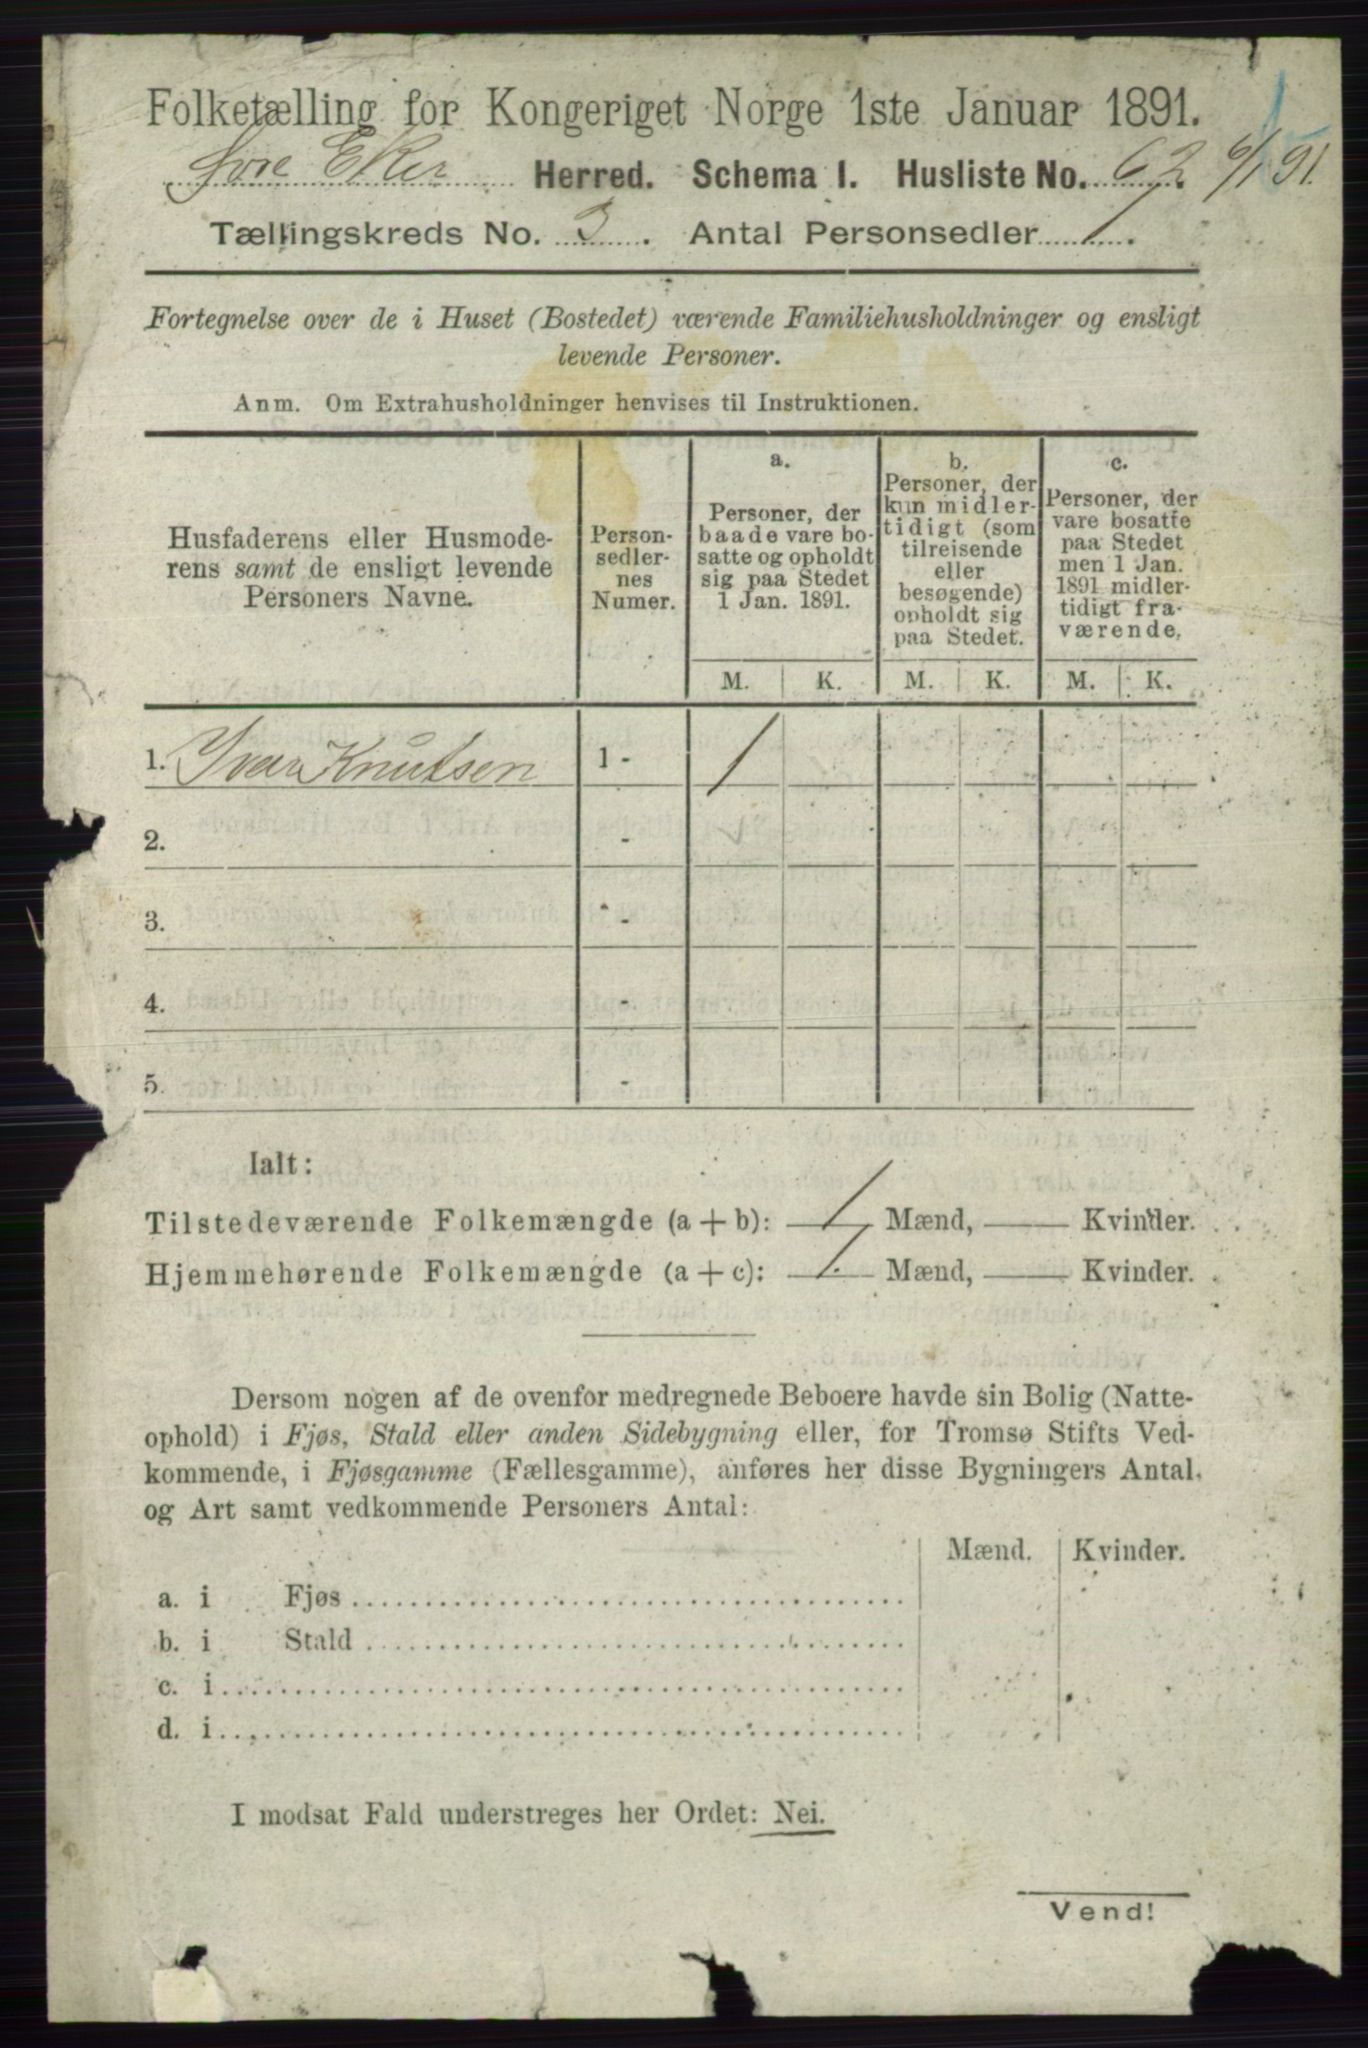 Folketælling for Kongeriget Norge 1ste Januar 1891.
Svre Eker Herred. Schema I. Husliste No. 62 6/1 91.
Tællingskreds No. 3. Antal Personsedler 1.
Fortegnelse over de i Huset (Bostedet) værende Familiehusholdninger og ensligt
levende Personer.
Anm. Om Extrahusholdninger henvises til Instruktionen.
Husfaderens eller Husmode-
rens samt de ensligt levende
Personers Navne.
Person-
sedler-
nes
Numer.
a.
Personer, der
baade vare bo-
satte og opholdt
sig paa Stedet
1 Jan. 1891.
b.
Personer, der
kun midler-
tidigt (som
tilreisende
eller
besøgende)
opholdt sig
paa Stedet.
c.
Personer, der
vare bosatte
paa Stedet
men 1 Jan.
1891 midler-
tidigt fra-
værende.
M. K. M. K. M. K.
1. Ivar Knutsen 1 - 1
2. -
3. -
4. -
5. -
Ialt:
Tilstedeværende Folkemængde (a + b): 1 Mænd, —— Kvinder.
Hjemmehørende Folkemængde (a + c): 1. Mænd, —— Kvinder.
Dersom nogen af de ovenfor medregnede Beboere havde sin Bolig (Natte-
ophold) i Fjøs, Stald eller anden Sidebygning eller, for Tromsø Stifts Ved-
kommende, i Fjøsgamme (Fællesgamme), anføres her disse Bygningers Antal
og Art samt vedkommende Personers Antal:
Mænd. Kvinder.
a. i Fjøs
b. i Stald
c. i
d. i
I modsat Fald understreges her Ordet: Nei.
Vend!